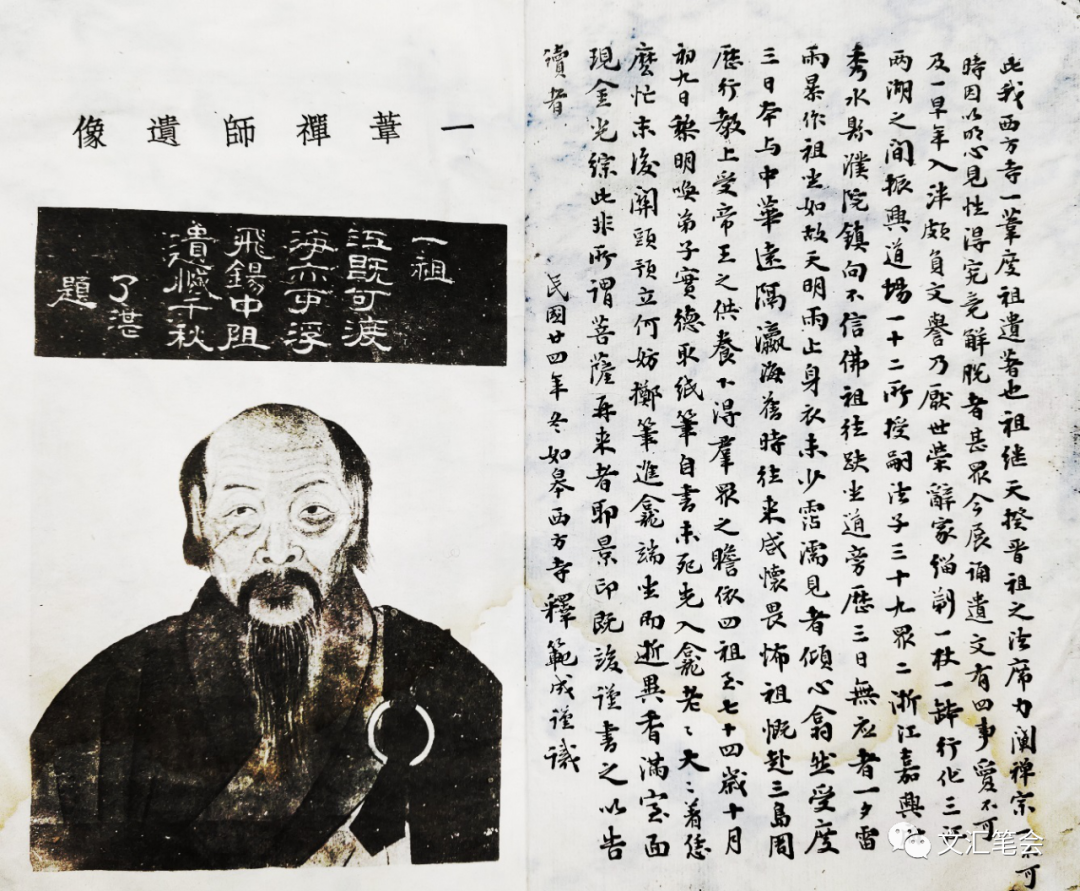 一葦禪師遺像
一祖
江既可渡
海亦可浮
飛錫中阻
遺憾千秋
了湛
題
此我西方寺一葦度祖遺著也祖继天揆晋祖之法席力阐禅宗
時因以明心見性得究竟解脱者甚眾今展誦遺文有四事爱不可
及一早年入泮颇負文譽乃厭世榮辭家缁剃一杖一缽行化三
两湖之間振興道場一十二所授嗣法子三十九眾二浙江嘉興
秀水縣濮院鎮向不信佛祖往趺坐道旁歷三日無应者一夕雷
雨暴作祖坐如故天明雨止身衣未少霑濡見者傾心翕然受度
三日本与中華遠隔瀛海舊時往来咸懷畏怖祖慨赴三島周
歷行教上受帝王之供養下得羣眾之瞻依四祖至七十四歲十月
初九日黎明唤弟子實德取紙筆自書未死先入龕老〻大〻着恁
麼忙末後関頭預立何妨擲筆進龕端坐而逝異香滿室面
現金光綜此非所謂菩薩再来者耶景印既竣谨書之以告
讀者
民國廿四年冬如皋西方寺釋範成谨識
文汇笔会